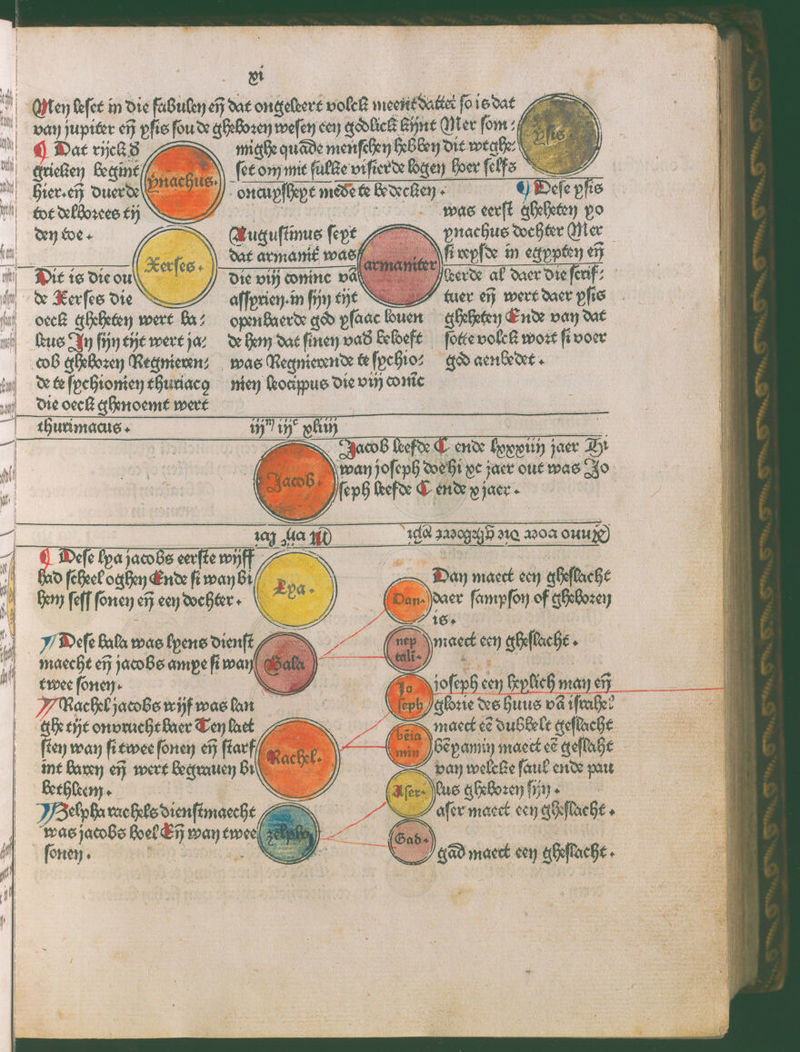 xi
Men leset in die fabulen en̄ dat ongeleert volck meent datter so is dat
van jupiter en̄ ysis sou de gheboren wesen een godlick kijnt Mer som⸗
mighe quāde menschen hebben dit wtghe⸗
set om mit sulke visierde logen hoer selfs
oncuysheyt mede te bedecken.
ysis.
¶ Dat rijck d̄
grieken begint
hier. en̄ duerde
tot delborees tij
den toe.
ynachus.
Xerses.
Dit is die ou
de Xerses die
oeck gheheten wert ba⸗
leus In sijn tijt wert ja⸗
cob gheboren Regnieren⸗
de te sychionien thuriacꝯ
die oeck ghenoemt wert
thurimacus.
Augustinus seyt
dat armanit̄ was
die viij coninc vā
assyrien. in sijn tijt
openbaerde god ysaac louen
de hem dat sinen vad̄ beloeft
was Regnierende te sychio⸗
nien leocippus die viij conīc
armaniter
¶ Dese ysis
was eerst gheheten yo
ynachus dochter Mer
si reysde in egypten en̄
leerde al daer die scrif⸗
tuer en̄ wert daer ysis
gheheten Ende van dat
sotte volck wort si voer
god aenbedet.
iijᵐ iijᶜ xliiij
Jacob.
Jacob leefde C ende lxxxiiij jaer Hi
wan joseph doe hi xc jaer out was Jo
seph leefde C ende x jaer.
¶ Dese lya jacobs eerste wijff
had scheel oghen Ende si wan bi
hem sess sonen en̄ een dochter.
Lya.
¶ Dese bala was lyens dienst
maecht en̄ jacobs amye si wan
twee sonen.
Bala
¶ Rachel jacobs wijf was lan
ghe tijt onvruchtbaer Ten laet
sten wan si twee sonen en̄ starf
int baren en̄ wert begrauen bi
bethleem.
Rachel.
¶ Zelpha rachels dienstmaecht
was jacobs boel En̄ wan twee
sonen.
zelpha
Dan.
Dan maect een gheslacht
daer sampson of gheboren
is.
nep
tali.
maect een gheslacht.
Jo
seph
joseph een heylich man en̄
glorie des huus vā israhel
maect eē dubbelt geslacht
bēia
min
bēyamin maect eē geslaht
van welcke saul ende pau
lus gheboren sijn.
Aser.
aser maect een gheslacht.
Gad.
gād maect een gheslacht.